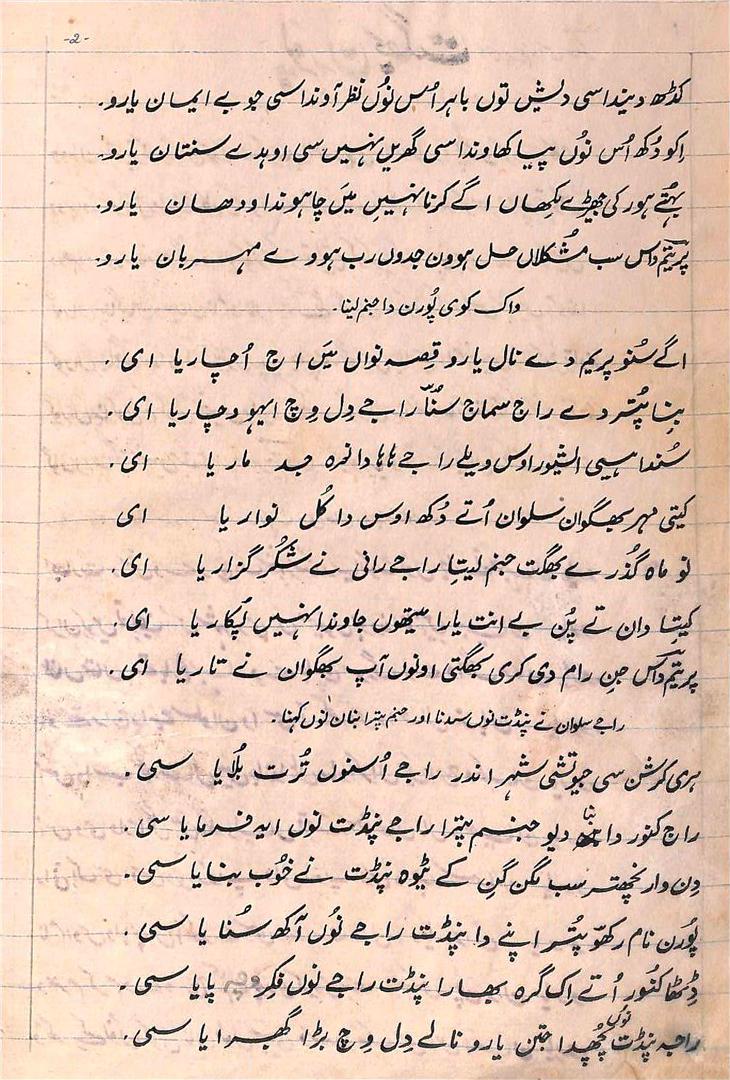 -2-
کڈھ دیندا سی دیش توں باہر اُس نوُں نظر آوندا سی جو بے ایمان یارو۔
اکو دُکھ اُس نوُں پیا کھاوندا سی گھر یں نہیں سی اوہدے سنتان یارو۔
بہُتے ہور کی جھیڑے لکھاں اگے کرنا نہیں میَں چاہوندا ودھان یارو۔
پریتم داس سب مشُکلاں حل ہوون جدوں رب ہووے مہربان یارو۔
واک کوی پوُرن دا جنم لینا۔
اگے سُنو پریم دے نال یارو قِصہ نواں میَں اج اُچاریا ای ۔
بِنا پُتر دے راج سماج سُنّا راجے دِل وِچ ایہو وچاریا ای ۔
سُندا ہیسی الیشور اوس ویلے راجے ہاہا دا نعرہ جد ماریا ای ۔
کیتی مہر بھگوان سلوان اُتے دُکھ اوس دا کُل نواریا ای
نو ماہ گذُرے بھگت جنم لیتا راجے رانی نے شکُر گزاریا ای ۔
کیتا دان تے پُن بے انت یارا میتھوں جاوندا نہیں لپُکاریا ای ۔
پریتم داس جن رام دی کری بھگتی اونوں آپ بھگوان نے تاریا ای ۔
راجے سلوان نے پنڈت نوں سدنا اور جنم پترا بنان نوں کہنا ۔
ہری کرشن سی جیوتشی شہر اندر راجے اُسنوں تُرت بلُایا سی ۔
راج کنور دا بنا دیو جنم پترا راجے پنڈت نوں ایہ فرمایا سی ۔
دِن وار نچھتر سب لگن گِن کے ٹیوہ پنڈت نے خوُب بنایا سی ۔
پوُرن نام رکھو پُتر اپنے دا پنڈت راجے نوُں آکھ سُنایا سی ۔
ڈِٹھا کنور اُتے اِک گرہ بھارا پنڈت راجے نوں فکر وچ پایا سی ۔
راجہ پنڈت نوُں پچُھدا جتن یارو نالے دِل وِچ بڑا گھبرایا سی ۔